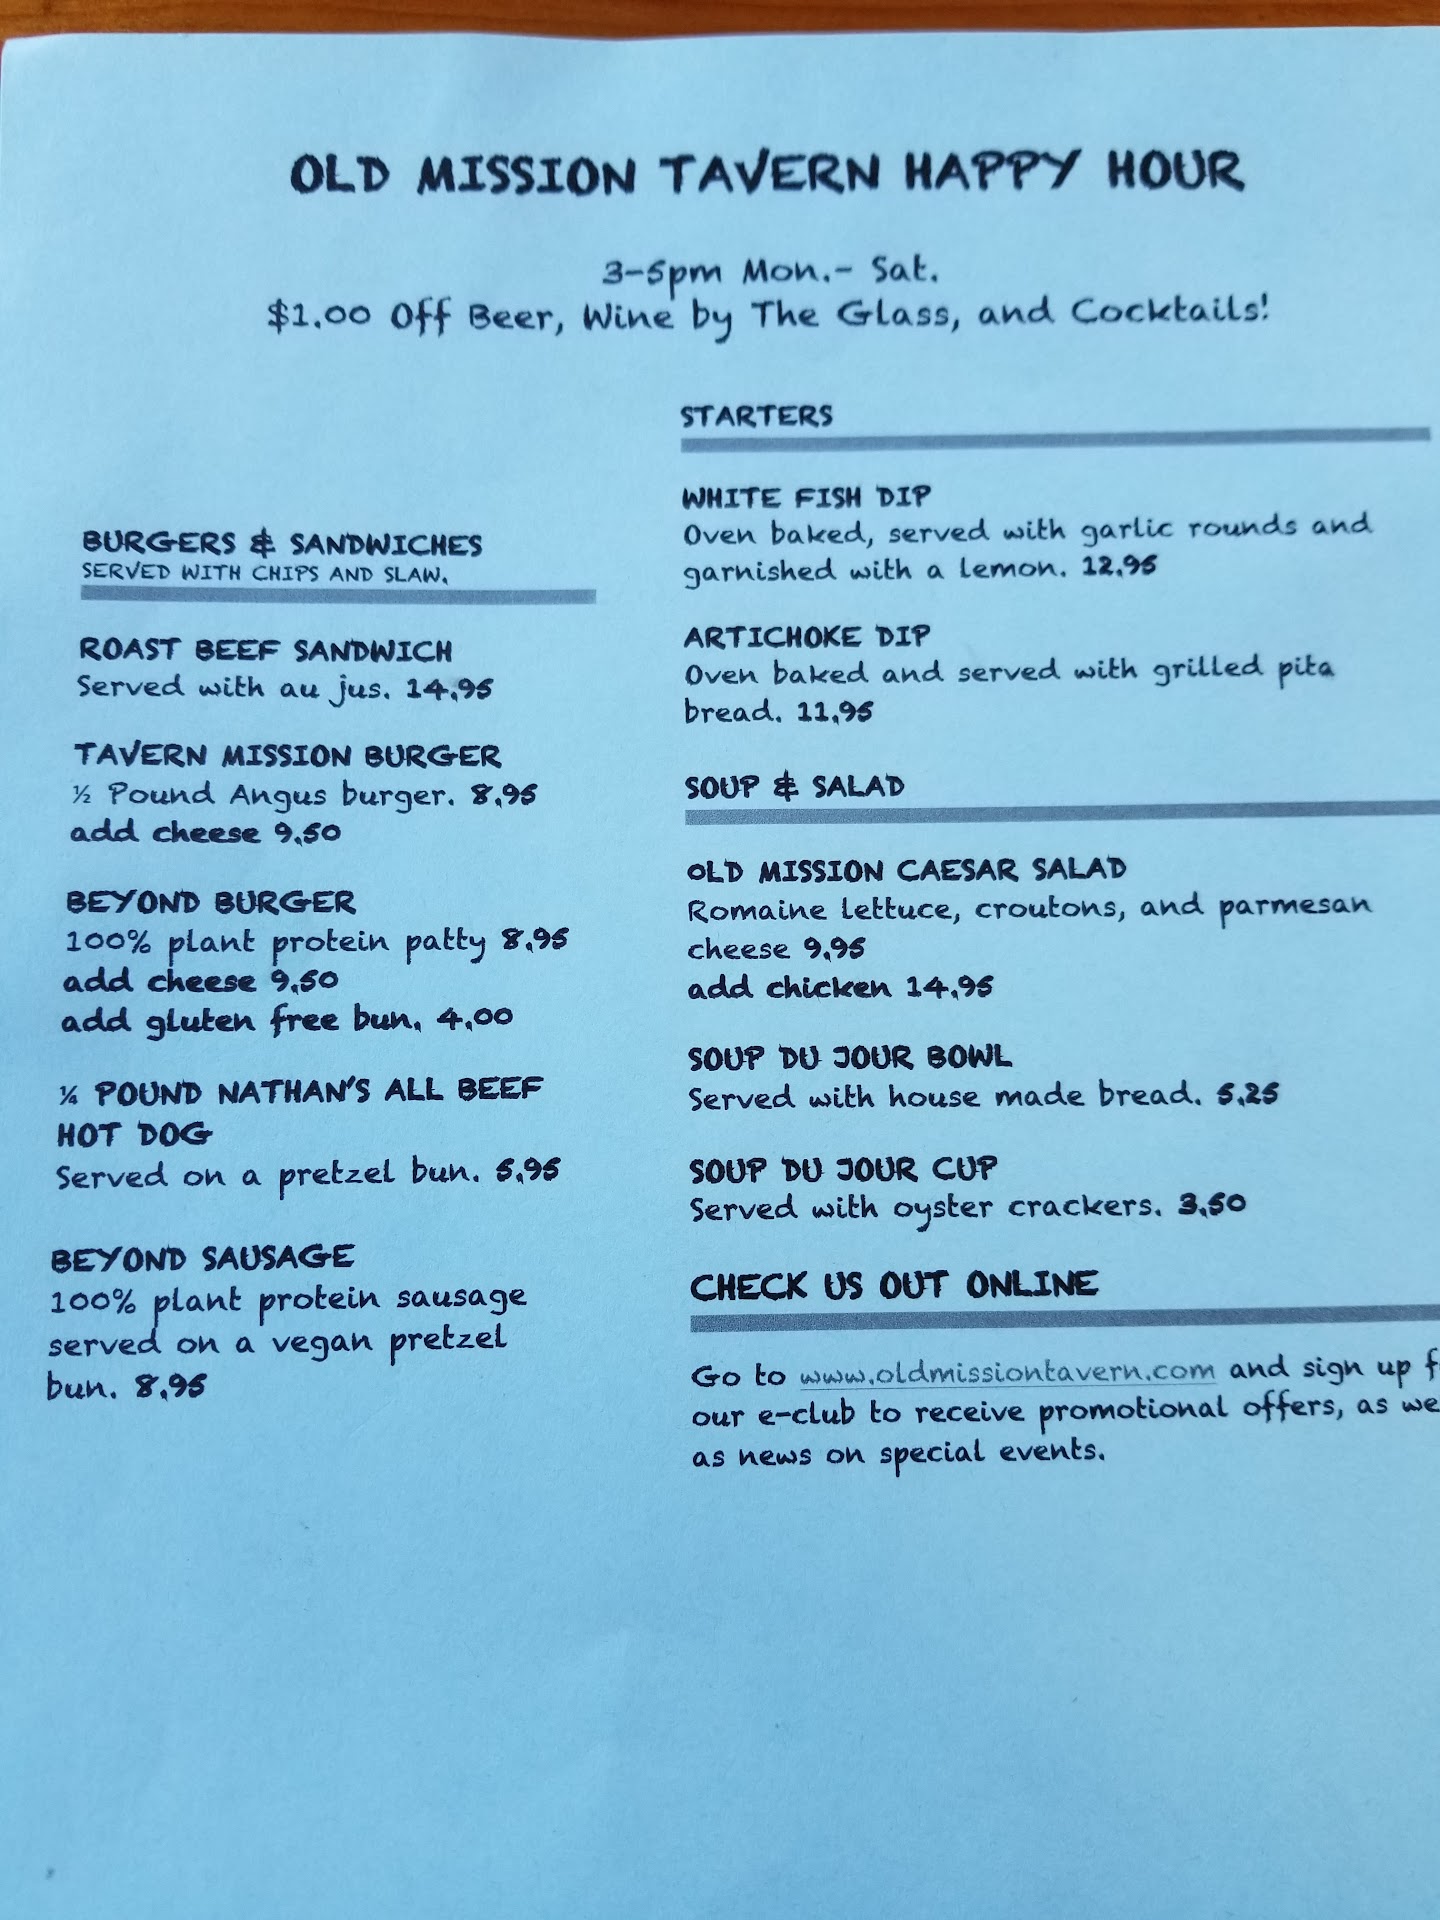 OLD MISSION TAVERN HAPPY HOUR
3-5pm Mon.- Sat.
$1.00 Off Beer, Wine by The Glass, and Cocktails!
BURGERS & SANDWICHES
SERVED WITH CHIPS AND SLAW.
ROAST BEEF SANDWICH
Served with au jus. 14.95
TAVERN MISSION BURGER
½ Pound Angus burger. 8.95
add cheese 9.50
BEYOND BURGER
100% plant protein patty 8.95
add cheese 9.50
add gluten free bun. 4.00
¼ POUND NATHAN'S ALL BEEF
HOT DOG
Served on a pretzel bun. 5.95
BEYOND SAUSAGE
100% plant protein sausage
served on a vegan pretzel
bun. 8.95
STARTERS
WHITE FISH DIP
Oven baked, served with garlic rounds and
garnished with a lemon. 12.95
ARTICHOKE DIP
Oven baked and served with grilled pita
bread. 11.95
SOUP & SALAD
OLD MISSION CAESAR SALAD
Romaine lettuce, croutons, and parmesan
cheese 9.95
add chicken 14.95
SOUP DU JOUR BOWL
Served with house made bread. 5.25
SOUP DU JOUR CUP
Served with oyster crackers. 3.50
CHECK US OUT ONLINE
Go to www.oldmissiontavern.com and sign up f
our e-club to receive promotional offers, as we
as news on special events.